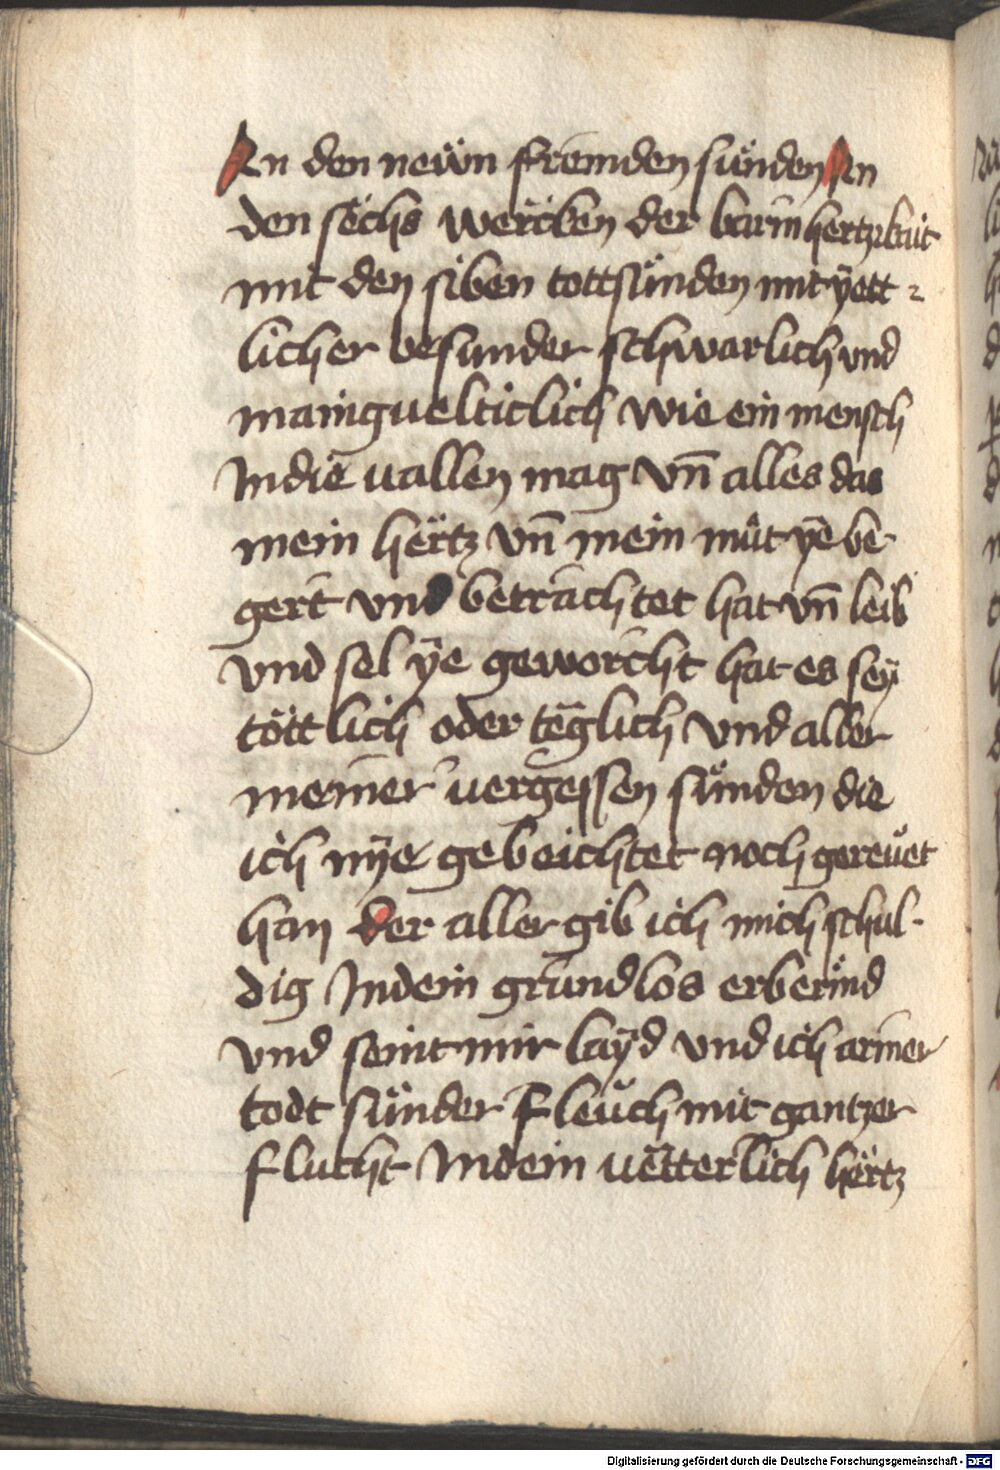 An den neẅn fremden sünden An
den sechs wercken der barmhertzikait
mit den siben tottsünden mit ÿett
licher besunder schwarlich und
mainguelticlich wie ein mensch
In die uallen mag vn̄ alles das
mein hertz vn̄ mein müt ÿe be
gert vnd betrachtet hat vn̄ leib
vnd sel ÿe geworcht hat es seÿ
töttlich oder teglich vnd aller
meiner uergessen sünden die
ich nÿe gebeichtet noch gereüet
han der aller gib ich mich schul-
dig In dein grundlos erbermd
vnd seint mir laÿd vnd ich armer
todt sünder fleüch mit gantzer
flucht In dein uetterlich hertz
Digitalisierung gefördert durch die Deutsche Forschungsgemeinschaft - DFG